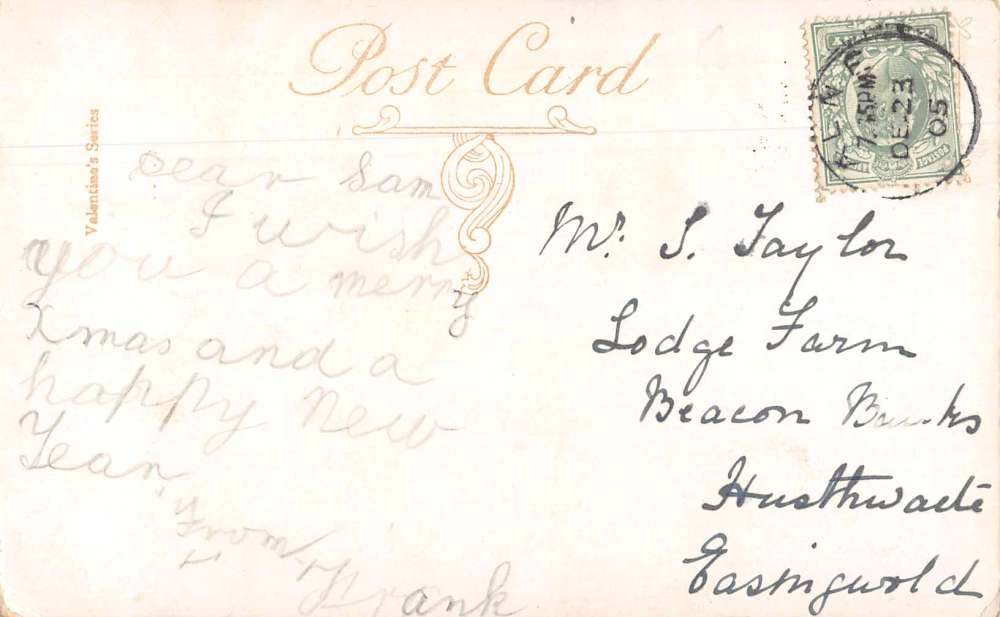 Post Card
Valentine's Series
Dear Sam
I wish
you a merry
Xmas and a
happy New
Year
From
Frank
Mr. S. Taylor
Lodge Farm
Beacon Banks
Husthwaite
Easingwold
DE 23
05